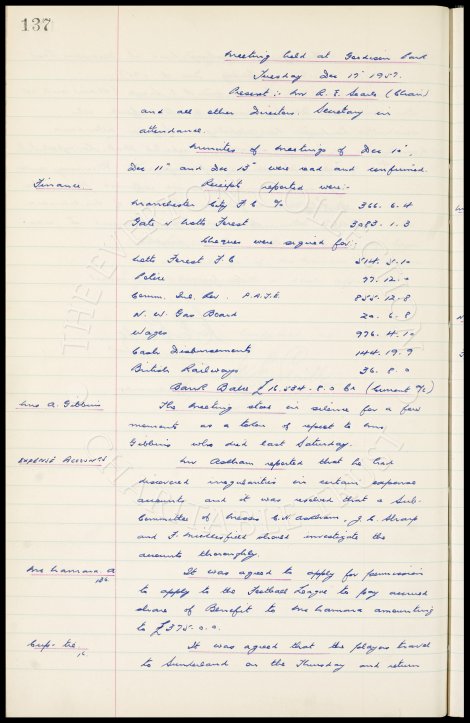 137
Meeting held at Goodison Park
Tuesday Dec 17' 1957.
Present :- Mr R. E. Searle (Chair)
and all other Directors. Secretary in
attendance.
Minutes of meetings of Dec 10",
Dec 11" and Dec 13" were read and confirmed.
Finance
Receipts reported were:-
Manchester City F C a/c 366. 6. 4
Gate v Notts Forest 3083. 1. 3
Cheques were signed for:
Notts Forest F.C 514. 5. 10
Police 77. 12. 0
Comm. Inl. Rev. P.A.Y.E. 855. 12. 8
N. W. Gas Board 20. 6. 8
Wages 976. 4. 10
Cash Disbursements 144. 19. 9
British Railways 36. 8. 0
Bank Balce £16,534. 8. 0 Cr (Current a/c)
Mrs A. Gibbins
The Meeting stood in silence for a few
moments as a token of respect to Mrs
Gibbins who died last Saturday.
EXPENSE ACCOUNTS
Mr Askham reported that he had
discovered irregularities in certain expense
accounts and it was resolved that a Sub-
Committee of Messrs C. H. Askham, J. C. Sharp
and F. Micklesfield should investigate the
accounts thoroughly.
McNamara. A
It was agreed to apply for permission
to apply to the Football League to pay accrued
share of Benefit to McNamara amounting
to £375-0-0.
Cup-tie
It was agreed that the players travel
to Sunderland on the Thursday and return
THE EVERTON COLLECTION
CHARITABLE TRUST